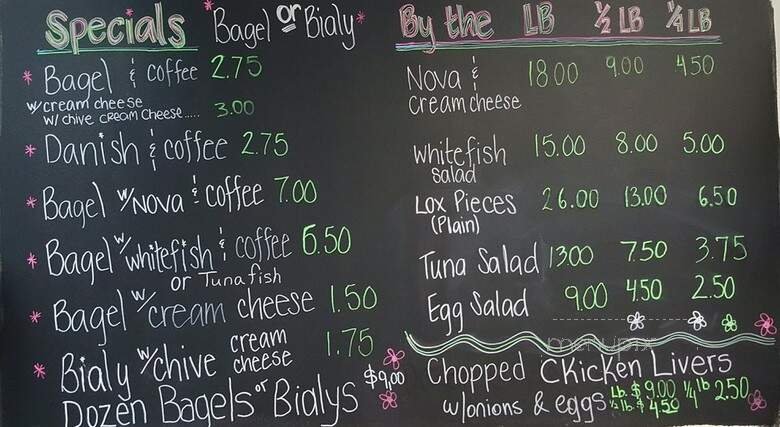 Specials *Bagel or Bialy*
* Bagel & coffee 2.75
w/cream cheese
w/ chive cream cheese..... 3.00
* Danish & coffee 2.75
* Bagel w/Nova & coffee 7.00
* Bagel w/whitefish & coffee 6.50
or Tunafish
* Bagel w/cream cheese 1.50
* Bialy w/chive cream cheese 1.75
Dozen Bagels or Bialys $9.00
By the LB ½ LB ¼ LB
Nova & 18.00 9.00 4.50
cream cheese
Whitefish 15.00 8.00 5.00
salad
Lox Pieces 26.00 13.00 6.50
(Plain)
Tuna Salad 1300 7.50 3.75
Egg Salad 9.00 4.50 2.50
menupix
Chopped Chicken Livers
w/onions & eggs Lb. $9.00 ¼ lb 2.50
½ lb. $4.50